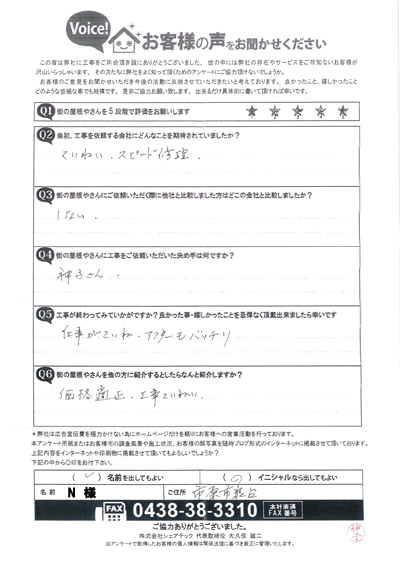 Voice!
お客様の声をお聞かせください
この度は弊社に工事をご用命頂き誠にありがとうございました。世の中には弊社の存在やサービスをご存知ないお客様が
沢山いらっしゃいます。その方たちに弊社をよく知って頂くためのアンケートにご協力頂けないでしょうか。
お客様のご意見をお聞かせいただき今後の活動に反映させていただきたいと考えております。良かったこと、嬉しかったこと
どのような些細な事でも結構です。是非ご協力お願い致します。出来るだけ具体的に書いて頂ければ幸いです。
Q1 街の屋根やさんを5段階で評価をお願いします
1 2 3 4 5
Q2 当初、工事を依頼する会社にどんなことを期待されていましたか?
ていねい、スピード修理、
Q3 街の屋根やさんにご依頼いただく際に他社と比較しました方はどこの会社と比較しましたか?
しない、
Q4 街の屋根やさんに工事をご依頼いただいた決め手は何ですか?
神子さん、
Q5 工事が終わってみていかがですか?良かった事・嬉しかったことを忌憚なく頂戴出来ましたら幸いです
仕事がていね、アフターもバッチリ
Q6 街の屋根やさんを他の方に紹介するとしたらなんと紹介しますか?
価格適正、工事ていねい、
*弊社は広告宣伝費を極力かけない為にホームページだけを頼りにお客様への営業活動を行っております。
本アンケート用紙またはお客様宅の調査風景や施工状況、お客様の顔写真を随時ブログ形式のインターネットに掲載させて頂いております。
上記内容をインターネットや印刷物に掲載させて頂いてもよろしいでしょうか?
下記の中から〇印をお付下さい。
( ✓ ) 名前を出してもよい ( 〇 ) イニシャルなら出してもよい
名 前 N 様 ご住所
FAX 0438-38-3310 本社直通 FAX番号
ご協力ありがとうございました。
株式会社シェアテック 代表取締役 大久保 誠二
当アンケートで取得したお客様の個人情報は関係法規に基づき厳正に管理いたします。
神子